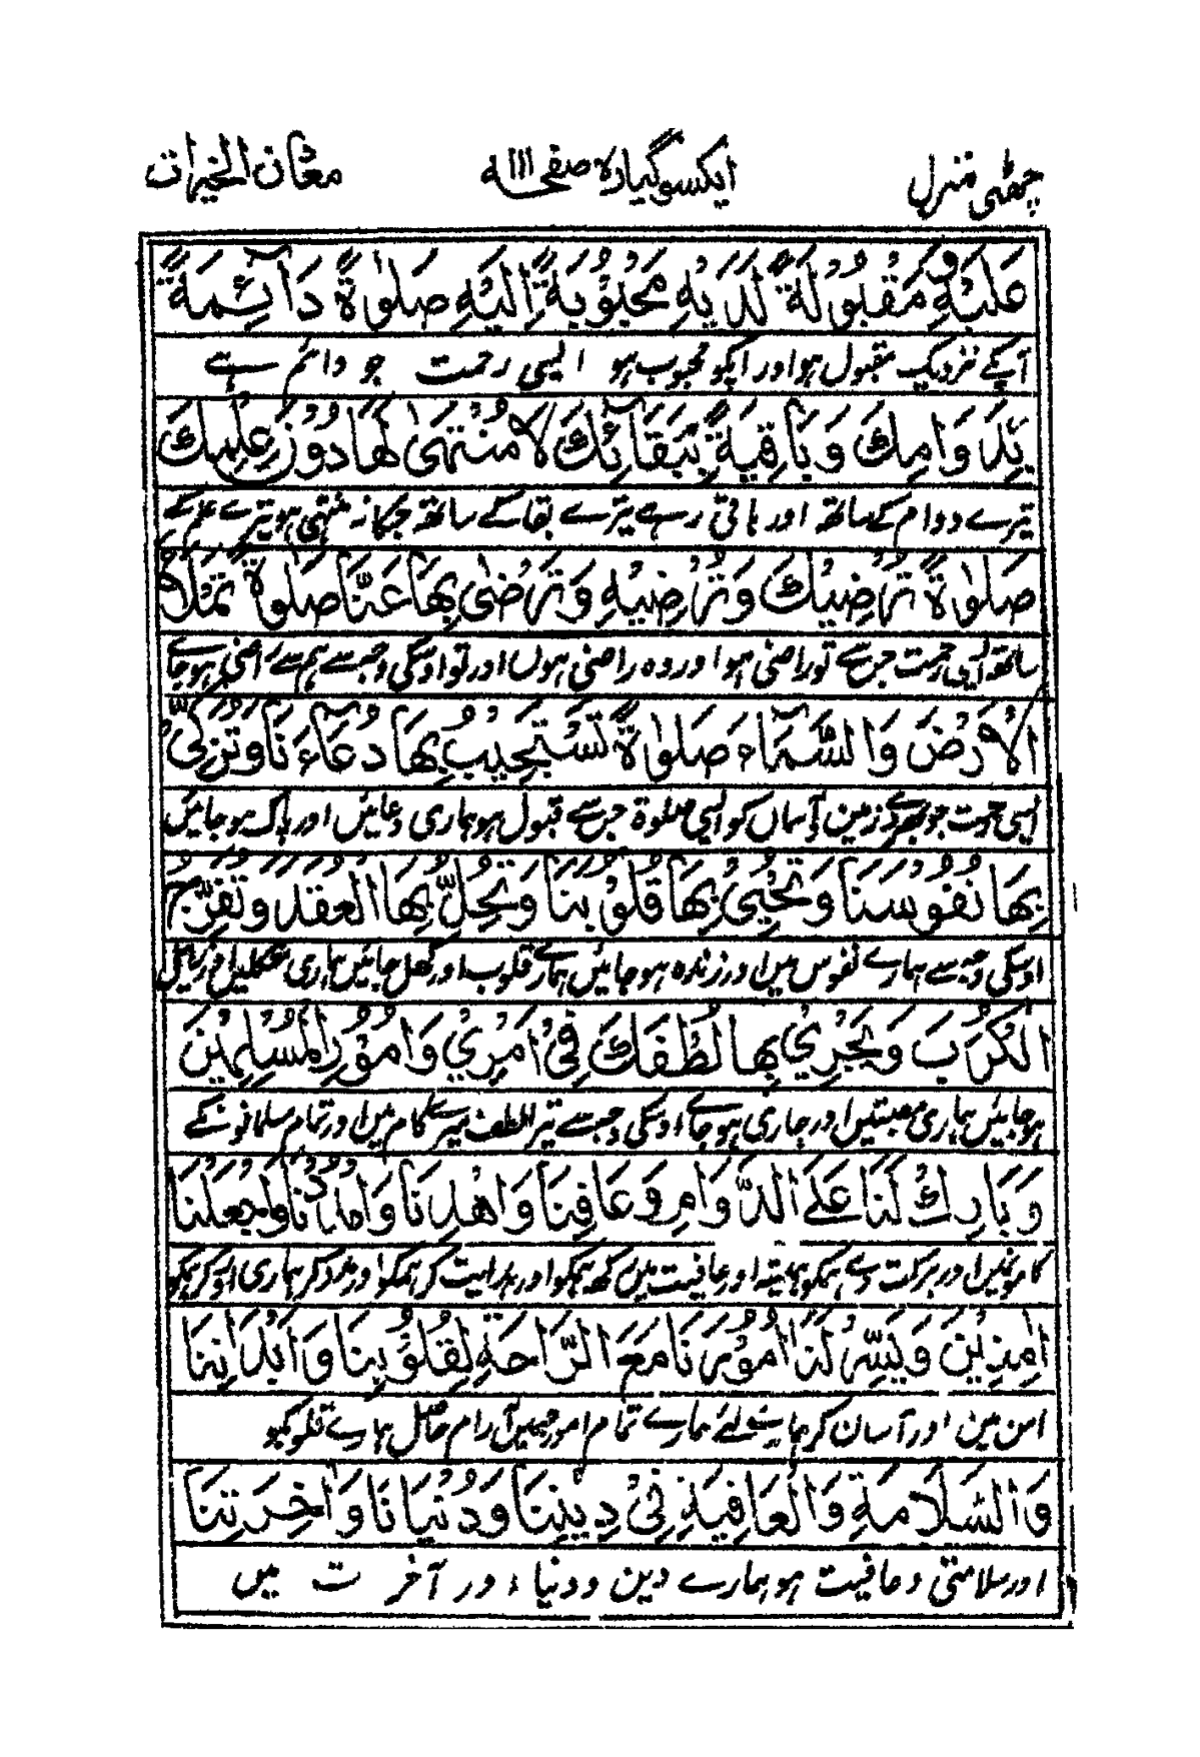 چھٹی منزل ایکسو گیارہ صفحہ ۱۱۱ معان الخیرات
عَلَيْهِ وَمَقْبُوْلَةً لَّدَيْهِ مَحْبُوْبَةً اِلَيْهِ صَلٰوةً دَآئِمَةً
آپکے نزدیک مقبول ہو اور آپکو محبوب ہو ایسی رحمت جو دائم ہے
بِدَوَامِكَ وَبَاقِيَةً بِبَقَآئِكَ لَا مُنْتَهٰى لَهَا دُوْنَ عِلْمِكَ
تیرے دوام کے ساتھ اور باقی رہے تیرے بقا کے ساتھ جسکا نہ منتہی ہو تیرے علم کے
صَلٰوةً تُرْضِيْكَ وَتُرْضِيْهِ وَتَرْضٰى بِهَا عَنَّا صَلٰوةً تَمْلَاُ
ساتھ ایسی رحمت جس سے تو راضی ہو اور وہ راضی ہوں اور تو اوسکی وجہ سے ہم سے راضی ہو جائے
الْاَرْضَ وَالسَّمَآءَ صَلٰوةً تَسْتَجِيْبُ بِهَا دُعَآءَنَا وَتُزَكِّيْ
ایسی رحمت جو بھر دے زمین و آسماں کو ایسی صلوٰۃ جس سے قبول ہو ہماری دعائیں اور پاک ہو جائیں
بِهَا نُفُوْسَنَا وَتُحْيِيْ بِهَا قُلُوْبَنَا وَتَحُلُّ بِهَا الْعُقَدَ وَتُفَرِّجُ
اوسکی وجہ سے ہمارے نفوس میں اور زندہ ہو جائیں ہمارے قلوب اور کھل جائیں ہماری مشکلیں اور زائل
الْكُرَبَ وَتُجْرِيْ بِهَا لُطْفَكَ فِيْ اَمْرِيْ وَاُمُوْرِ الْمُسْلِمِيْنَ
ہو جائیں ہماری مصیبتیں اور جاری ہو جائے اوسکی وجہ سے تیرا لطف میرے کام میں اور تمام مسلمانونکے
وَبَارِكْ لَنَا عَلَى الدَّوَامِ وَعَافِنَا وَاهْدِنَا وَامْدُدْنَا وَاجْعَلْنَا
کامونمیں اور برکت دے ہمکو ہمیشہ اور عافیت میں رکھ ہمکو اور ہدایت کر ہمکو اور مدد کر ہماری اور کر ہمکو
اٰمِنِيْنَ وَيَسِّرْ لَنَا اُمُوْرَنَا مَعَ الرَّاحَةِ لِقُلُوْبِنَا وَاَبْدَانِنَا
امن میں اور آسان کر ہمارے لئے ہمارے تمام امور جسمیں آرام حاصل ہمارے قلوبکو
وَالسَّلَامَةِ وَالْعَافِيَةِ فِيْ دِيْنِنَا وَدُنْيَانَا وَاٰخِرَتِنَا
اور سلامتی و عافیت ہو ہمارے دین و دنیا اور آخرت میں